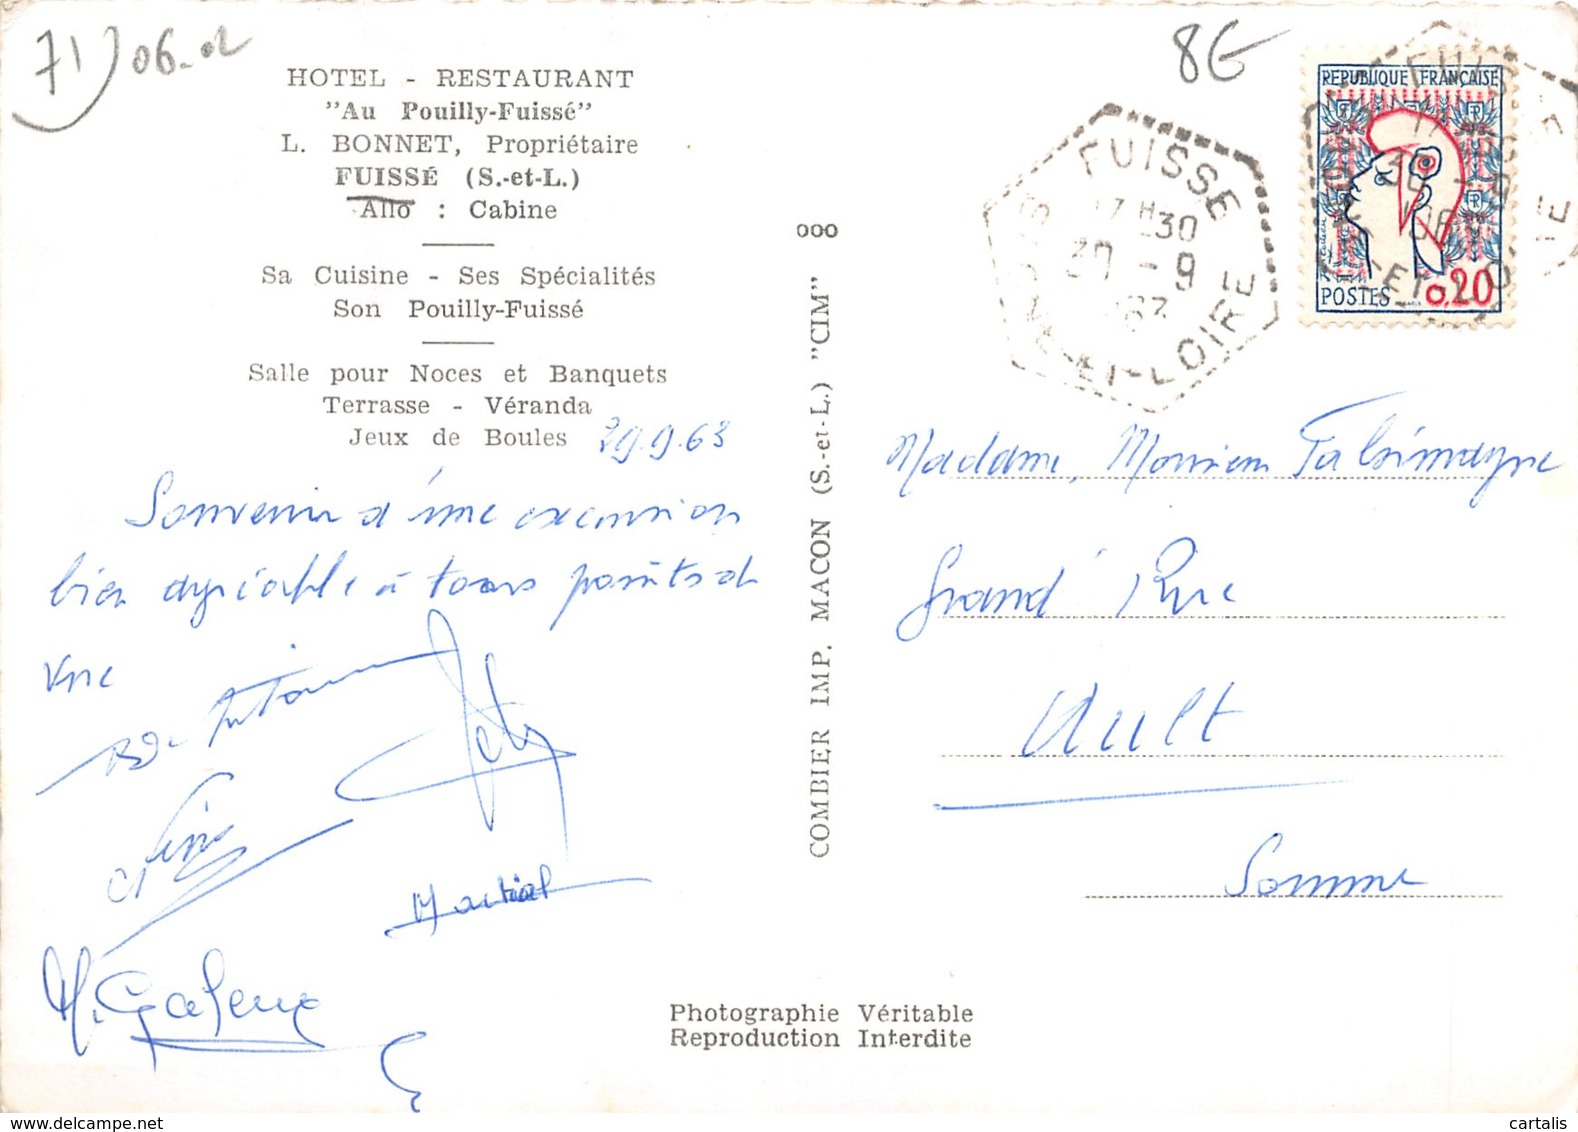 71) 06-02
8€
HOTEL - RESTAURANT
"Au Pouilly-Fuissé"
L. BONNET, Propriétaire
FUISSÉ (S.-et-L.)
Allo : Cabine
Sa Cuisine - Ses Spécialités
Son Pouilly-Fuissé
Salle pour Noces et Banquets
Terrasse - Véranda
Jeux de Boules
29.9.63
Souvenir d'une excursion
bien agréable à tous points de
vue
Martial
COMBIER IMP. MACON (S.-et-L.) "CIM"
000
FUISSE
17 H 30
30 - 9
SAONE-ET-LOIRE
REPUBLIQUE FRANÇAISE
POSTES 0,20
FUISSE
30 - 9
Madame, Monsieur
Grand' Rue
Ault
Somme
Photographie Véritable
Reproduction Interdite
delcampe.net
cartalis